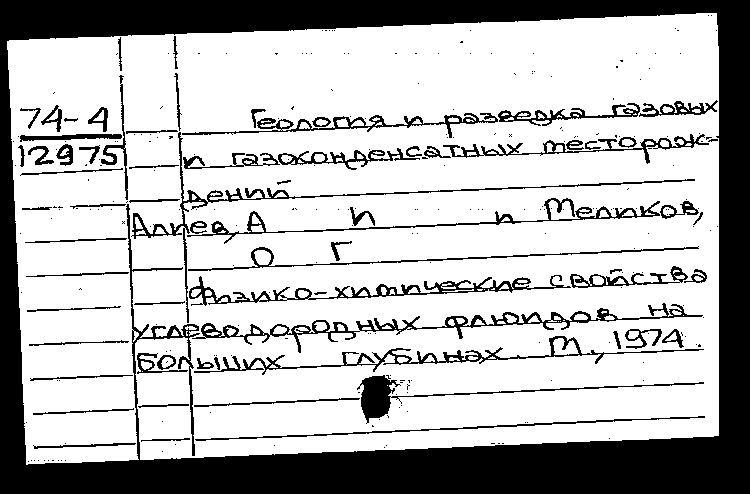 74-4
12975
Геология и разведка газовых
и газоконденсатных месторож-
дений
Алиев, А И и Меликов,
О Г
Физико-химические свойства
углеводородных флюидов на
больших глубинах. М., 1974.